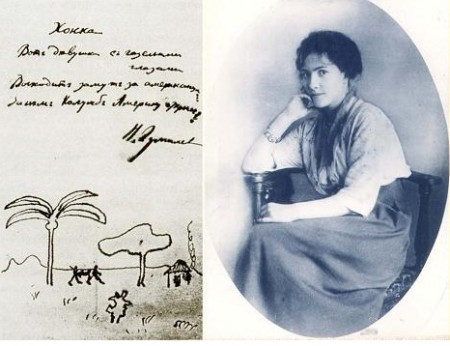 Хокка
Вотъ дѣвушка съ газельими
глазами
Выходитъ замужъ за американца
Зачѣмъ Колумбъ Америку открылъ
Н. Гумилев